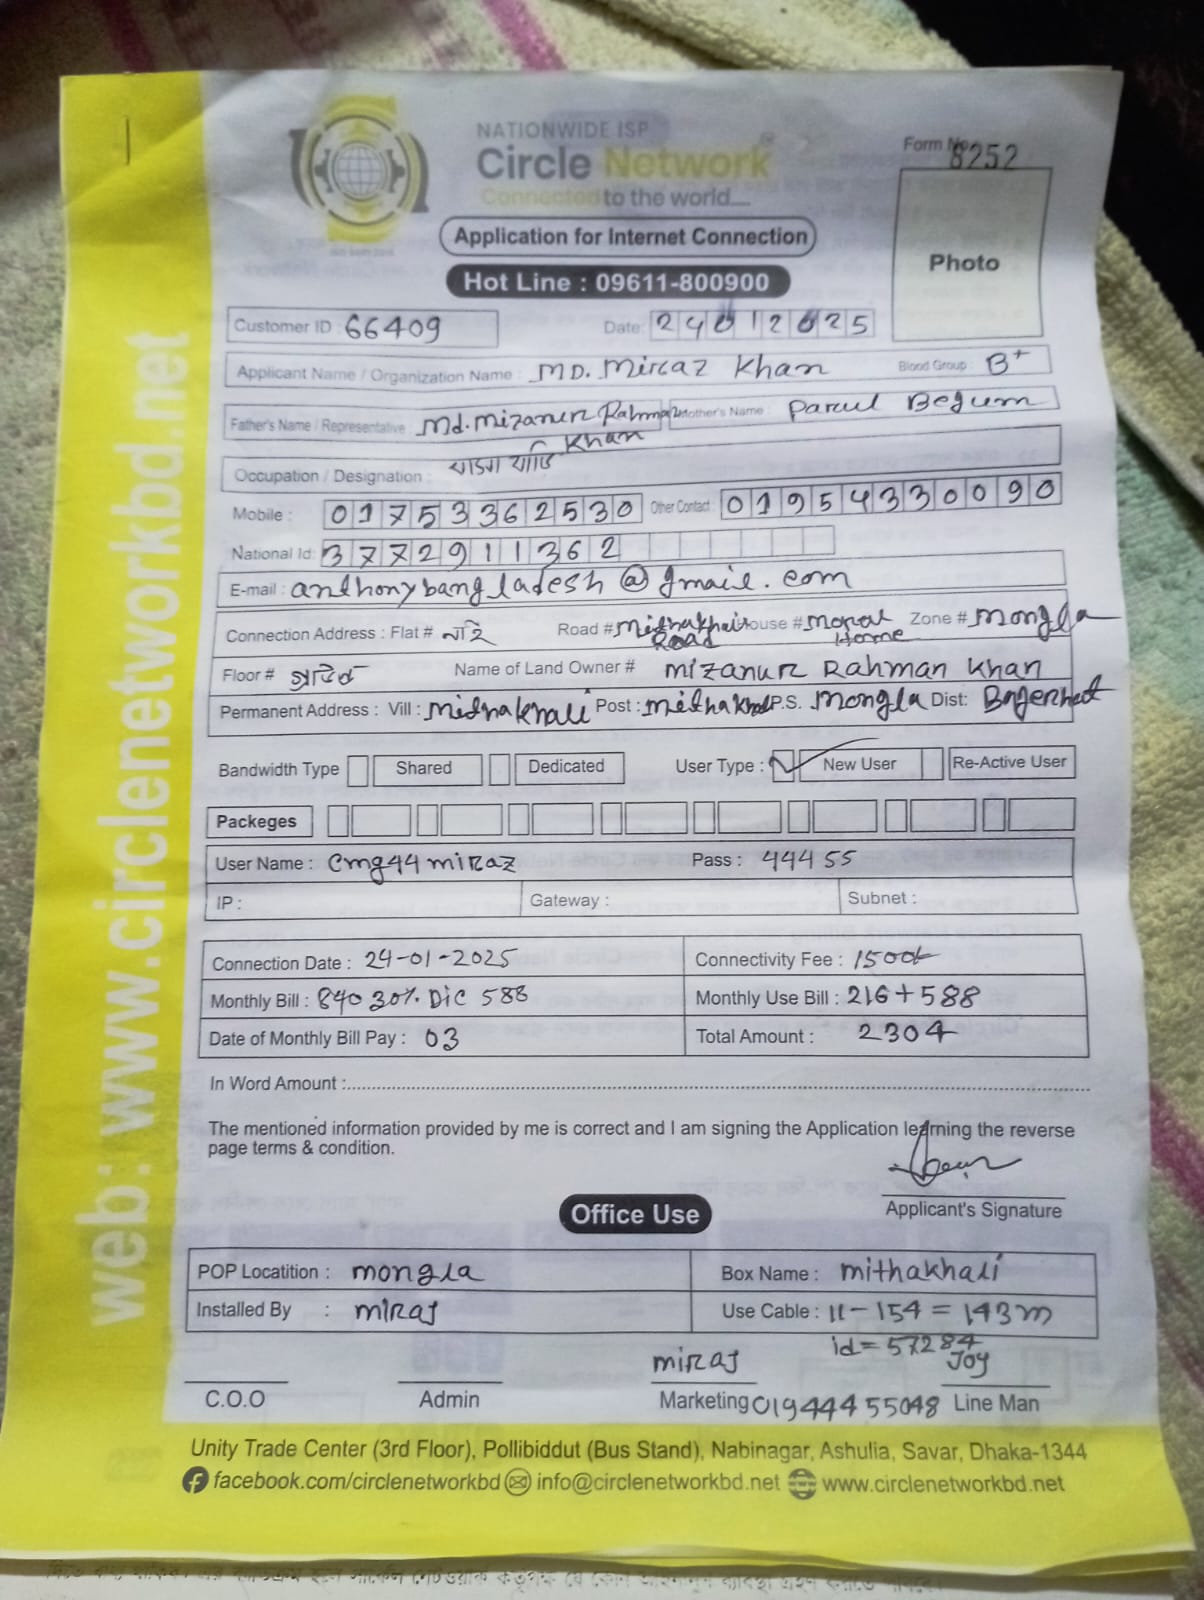 NATIONWIDE ISP
Circle Network
Connected to the world....
Form No. 8252
Application for Internet Connection
Photo
Hot Line : 09611-800900
Customer ID : 66409 Date: 24012025
Applicant Name / Organization Name : MD. Miraz Khan Blood Group : B+
Father's Name / Representative Md. Mizanur Rahman Mother's Name : Parul Begum
Khan
Occupation / Designation :
Mobile : 01753362530 Other Contact : 01954330090
National Id: 3772911362
E-mail : anthonybangladesh@gmail.com
Connection Address : Flat # নাই Road # Mithakhali House # Moral Zone # Mongla
Road Home
Floor # Name of Land Owner # Mizanur Rahman Khan
Permanent Address : Vill : Mithakhali Post : Mithakhali P.S. Mongla Dist: Bagerhat
Bandwidth Type Shared Dedicated User Type : New User Re-Active User
Packeges
User Name : Cmg44miraz Pass : 44455
IP : Gateway : Subnet :
Connection Date : 24-01-2025 Connectivity Fee : 1500/-
Monthly Bill : 840 30% Dic 588 Monthly Use Bill : 216+588
Date of Monthly Bill Pay : 03 Total Amount : 2304
In Word Amount :
The mentioned information provided by me is correct and I am signing the Application learning the reverse
page terms & condition.
Applicant's Signature
Office Use
POP Locatition : mongla Box Name : mithakhali
Installed By : miraj Use Cable : 11-154 = 143m
id= 57284
miraj Joy
C.O.O Admin Marketing 01944455048 Line Man
Unity Trade Center (3rd Floor), Pollibiddut (Bus Stand), Nabinagar, Ashulia, Savar, Dhaka-1344
facebook.com/circlenetworkbd info@circlenetworkbd.net www.circlenetworkbd.net
web: www.circlenetworkbd.net